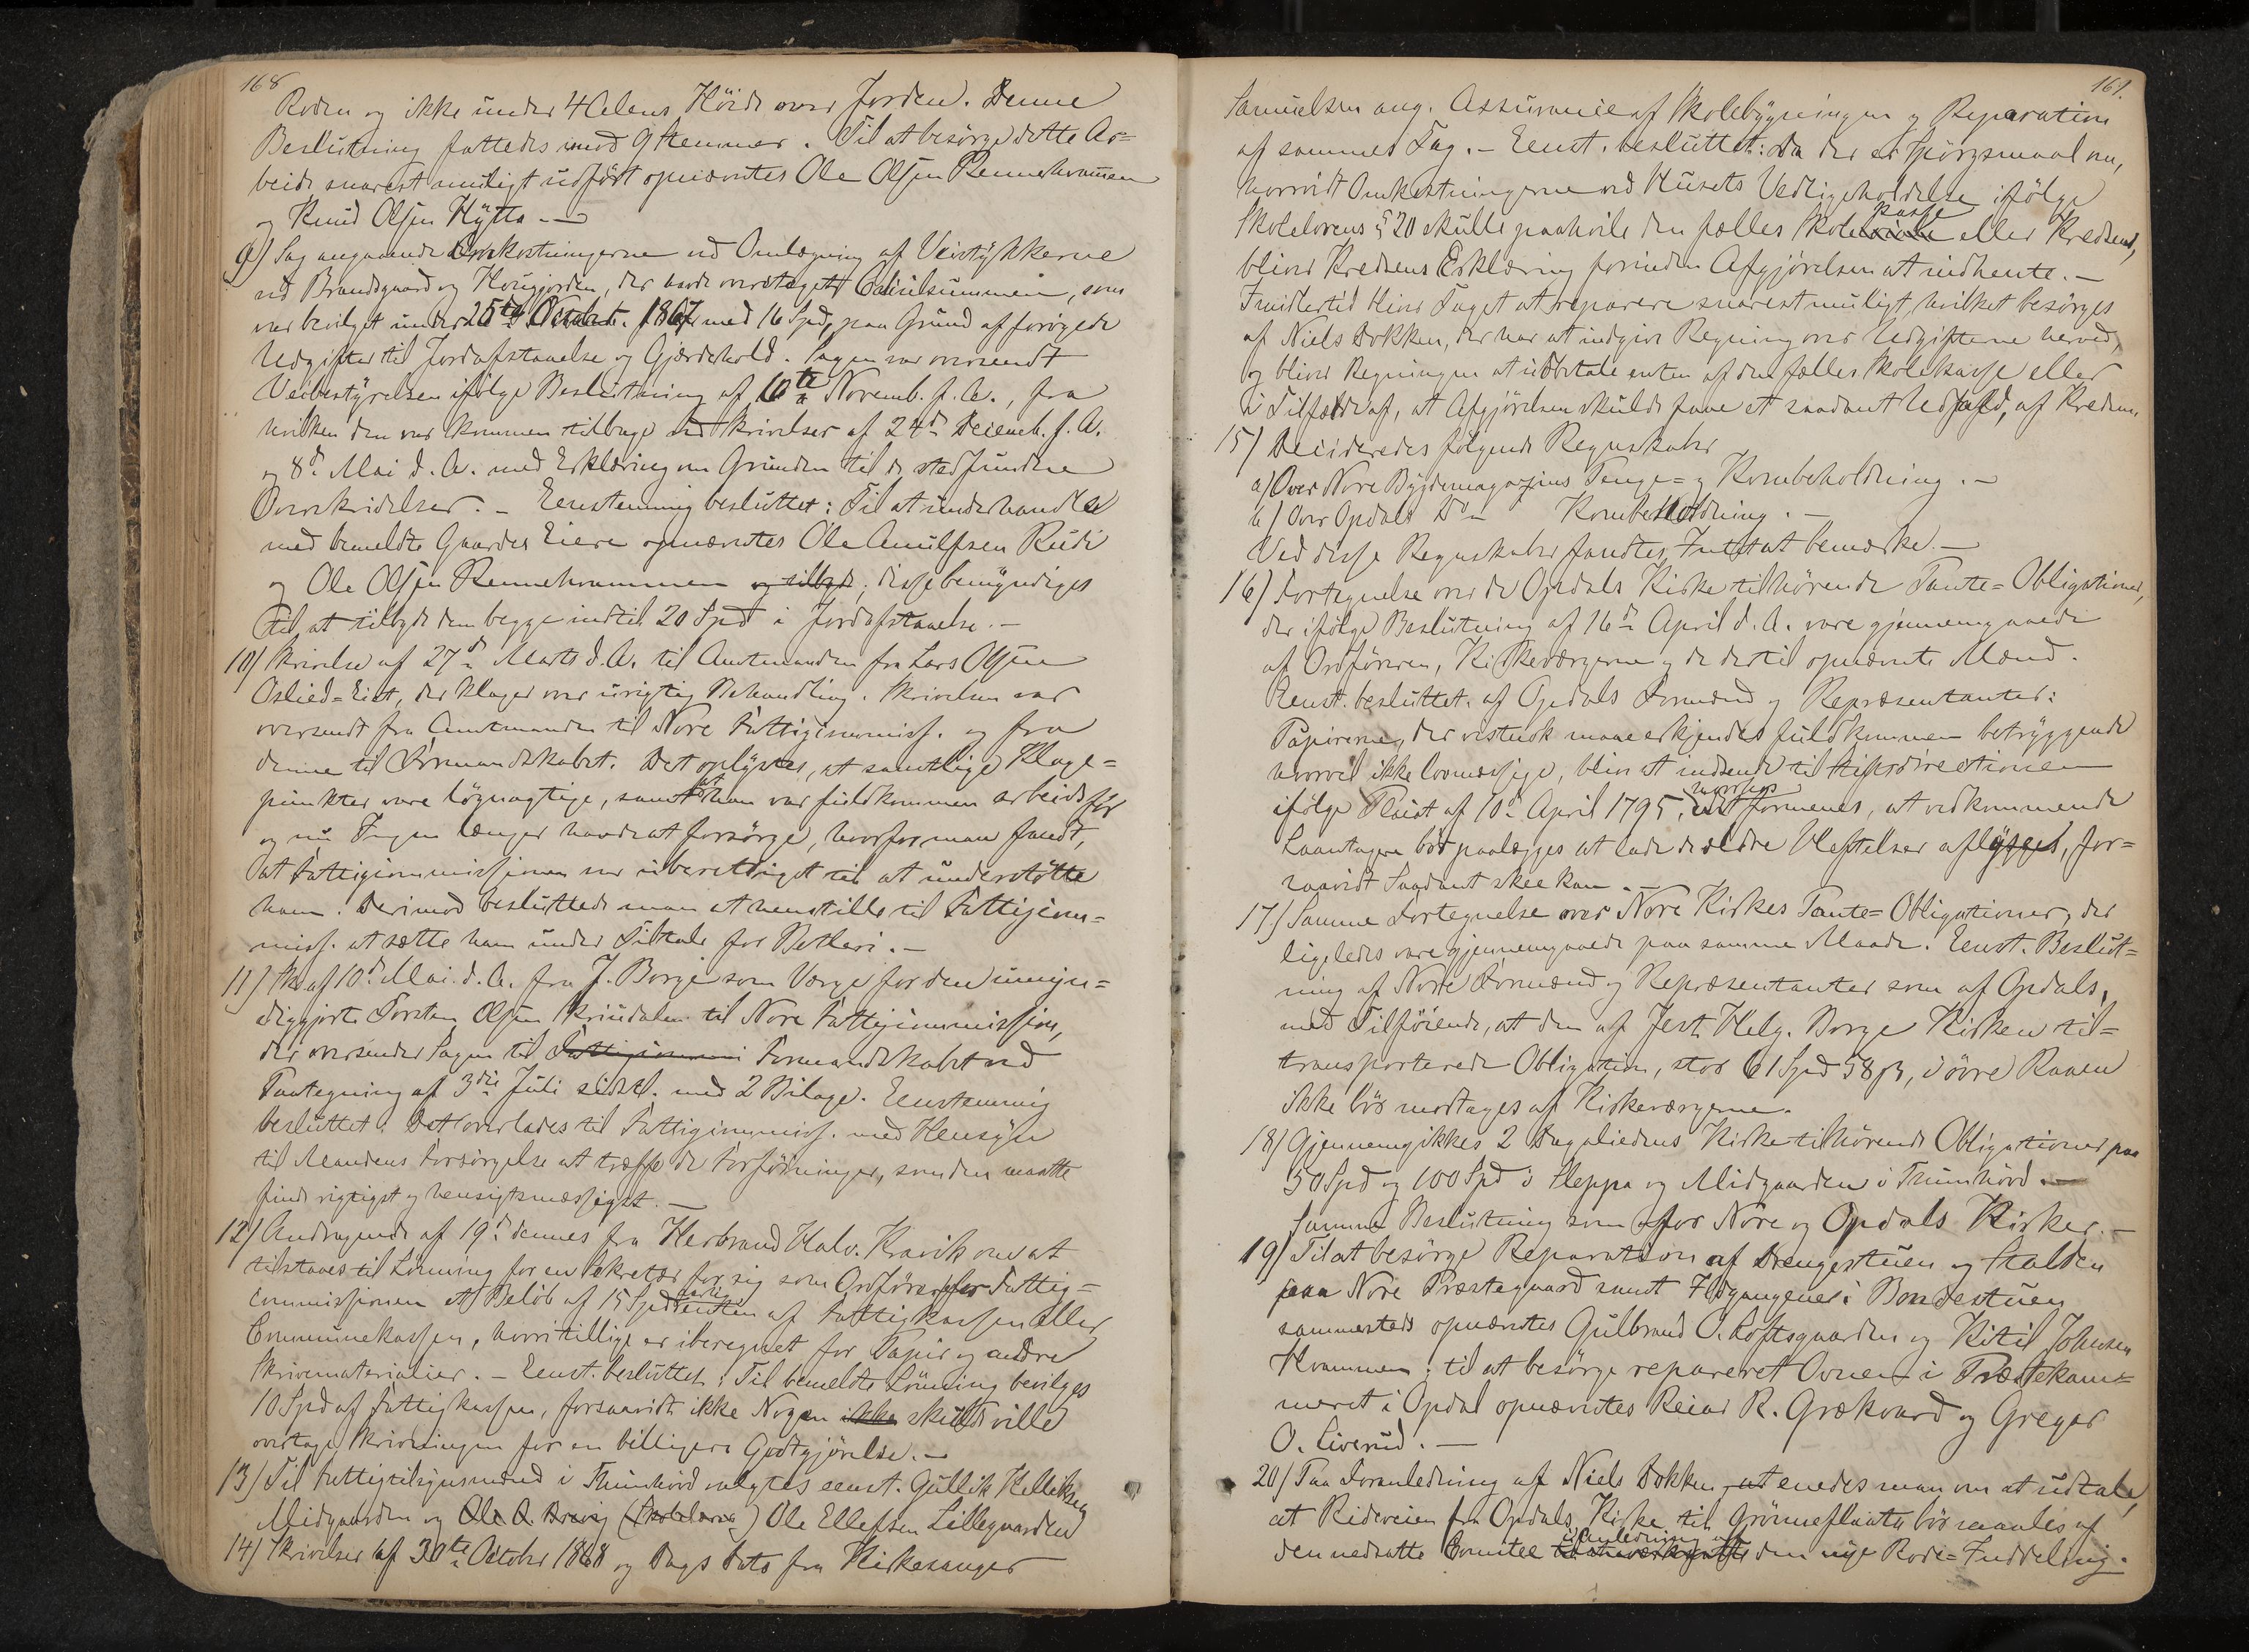 168
Roden og ikke under 4 Alens Höide over Jorden. Denne
Beslutning fattedes med 9 Stemmer. Til at besörge dette Ar=
beide snarest muligt udfört opnævntes Ole Olsen Rennehvammen
og Knud Olsen Hytta. —
9) Sag angaaende Omkostningerne ved Omlægning af Veistykkerne
ved Brandsgaard og Hougjorden, der havde oversteget Calculsummen, som
var bevilget under 25de Octobr. 1867 med 16 Spd, paa Grund af forögede
Udgifter til Jordafstaaelse og Gjærdehold. Sagen var oversendt
Veibestyrelsen ifölge Beslutning af 10te Novemb. f. A., fra
hvilken den var kommen tilbage ved Skrivelser af 24de Decemb. f. A.
og 8de Mai d. A. med Erklæring om Grunden til de stedfundne
Overskridelser. – Eenstemmig besluttet: Til at underhandle
med bemeldte Gaardes Eiere opnævntes Ole Amulfsen Rudi
og Ole Olsen Rennehvammen og tilbyde; disse bemyndiges
til at tilbyde dem begge indtil 20 Spd i Jordafstaaelse. –
10) Skrivelse af 27de Marts d. A. til Amtmanden fra Lars Olsen
Oslied=Eiet, der klager over urigtig Behandling. Skrivelsen var
oversendt fra Amtmanden til Nore Fattigcommiss. og fra
denne til Formandskabet. Det oplystes, at samtlige Klage=
punkter vare lögnagtige, samt at han var fuldkommen arbeidsför
og nu Ingen længer havde at forsörge, hvorfor man fandt,
at Fattigcommissionen var uberettiget til at understötte
ham. Derimod besluttede man at henstille til Fattigcom=
miss. at sætte ham under Tiltale for Betleri. –
11) Skr. af 10de Mai d. A. fra J. Borge som Værge for den umyn=
diggjorte Torsten Olsen Skrindalen til Nore Fattigcommission,
der oversender Sagen til Fattigcommi Formandskabet ved
Paategning af 3die Juli sidstl. med 2 Bilage. Eenstemmig
besluttet: Det overlades til Fattigcommiss. med Hensyn
til Mandens Forsörgelse at træffe de Forföininger, som den maatte
finde rigtigst og hensigtsmæssigst. –
12) Andragende af 19de dennes fra Herbrand Halv. Kravik om at
tilstaaes til Lönning for en Sekretær for sig som Ordförer for Fattig=
commissionen et Beløb af 15 Spd aarlig enten af Fattigkassen eller
Communekassen, hvori tillige er iberegnet for Papir og andre
Skrivematerialier. – Eenst. besluttet: Til bemeldte Lönning bevilges
10 Spd af Fattigkassen, forsaavidt ikke Nogen ikke skulde ville
overtage Skrivningen for en billigere Godtgjörelse. –
13) Til Fattigtilsynsmænd i Thunhovd valgtes eenst. Gullik Kittilsen
Midgaarden og Ole O. Bravig (Skolelærer) Ole Ellefsen Lillegaarden
14) Skrivelser af 30te Octobr 1868 og Dags Dato fra Kirkesanger
161.
Samuelsen ang. Assurance af Skolebygningen og Reparation
af sammes Tag. – Eenst. besluttet: Da der er Spörgsmaal om,
hvorvidt Omkostningerne ved Husets Vedligeholdelse ifölge
Skolelovens § 20 skulle paahvile den fælles Skolekasse eller Kredsen,
bliver Kredsens Erklæring forinden Afgjörelsen at indhente. –
Imidlertid bliver Taget at reparere snarest muligt, hvilket besörges
af Niels Dokken, der har at indgive Regning over Udgifterne herved,
og bliver Regningen at udbetale enten af den fælles Skolekasse eller
i Tilfælde af, at Afgjörelsen skulde faae et saadant Udfald, af Kredsen.
15) Decideredes fölgende Regnskaber
a) Over Nore Bygdemagazins Penge= og Kornbeholdning. –
b) Over Opdals Do – Kornbeholdning. –
Ved disse Regnskaber fandtes Intet at bemærke. –
16) Fortegnelse over de Opdals Kirke tilhörende Pante=Obligationer,
der ifölge Beslutning af 16de April d. A. vare gjennemgaaede
af Ordföreren, Kirkeværgerne og de dertil opnævnte Mænd.
Eenst. besluttet af Opdals Formænd og Repræsentanter:
Papirerne, der vistnok maae erkjendes fuldkommen betryggende
hvorvel ikke lovmæssige, bliver at indsende til Stiftsdirectionen
ifölge Placat af 10de April 1795, hvorhos formenes, at vedkommende
Laantagere bör paalægges at lade de ældre Heftelser aflyses, for=
saavidt Saadant skee kan. –
17) Samme Fortegnelse over Nore Kirkes Pante=Obligationer, der
ligeledes vare gjennemgaaede paa samme Maade. Eenst. Beslut=
ning af Nore Formænd og Repræsentanter som af Opdals,
med Tilföiende, at den af Jest. Helg. Borge Kirken til=
transporterede Obligation, stor 61 Spd 58 ß, i övre Raaen
ikke bör modtages af Kirkeværgerne.
18) Gjennemgikkes 2 Dagaliedens Kirke tilhörende Obligationer paa
50 Spd og 100 Spd i Sleppa og Midgaarden i Thunhovd. —
Samme Beslutning som for Nore og Opdals Kirker. –
19) Til at besörge Reparation af Drengestuen og Stalden
paa Nore Præstegaard samt Ildgangene i Bondestuen
sammesteds opnævntes Gulbrand O. Loftsgaarden og Kitil Johnsen
Hvammen; til at besörge repareret Ovnen i Præstekam=
meret i Opdal opnævntes Reiar R. Grækvard og Greger
O. Liverud. —
20) Paa Foranledning af Niels Dokken at enedes man om at udtale,
at Rideveien fra Opdals Kirke til Grönneflaata bör maales af
den nedsatte Comitee i Anledning af den nye Rode=Inddeling.